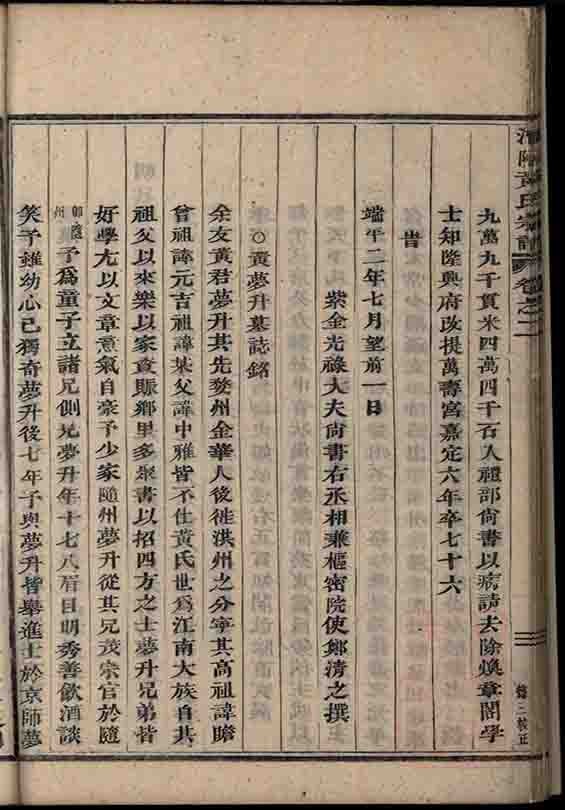 黃氏宗譜 卷之二
九萬九千貫米四萬四千石入禮部尙書以病請去除煥章閣學
士知隆興府改提萬壽宮嘉定六年卒七十六
旹
端平二年七月望前一日
紫金光祿大夫尙書右丞相兼樞密院使鄭清之撰
○黃夢升墓誌銘
余友黃君夢升其先婺州金華人後徙洪州之分寧其高祖諱贍
曾祖諱元吉祖諱某父諱中雅皆不仕黃氏世爲江南大族自其
祖父以來樂以家貲賑鄉里多聚書以招四方之士夢升兄弟皆
好學尤以文章意氣自豪予少家隨州夢升從其兄茂宗官於隨
州 予爲童子立諸兄側見夢升年十七八眉目明秀善飲酒談
笑予雖幼心已獨奇夢升後七年予與夢升皆舉進士於京師夢
三校正